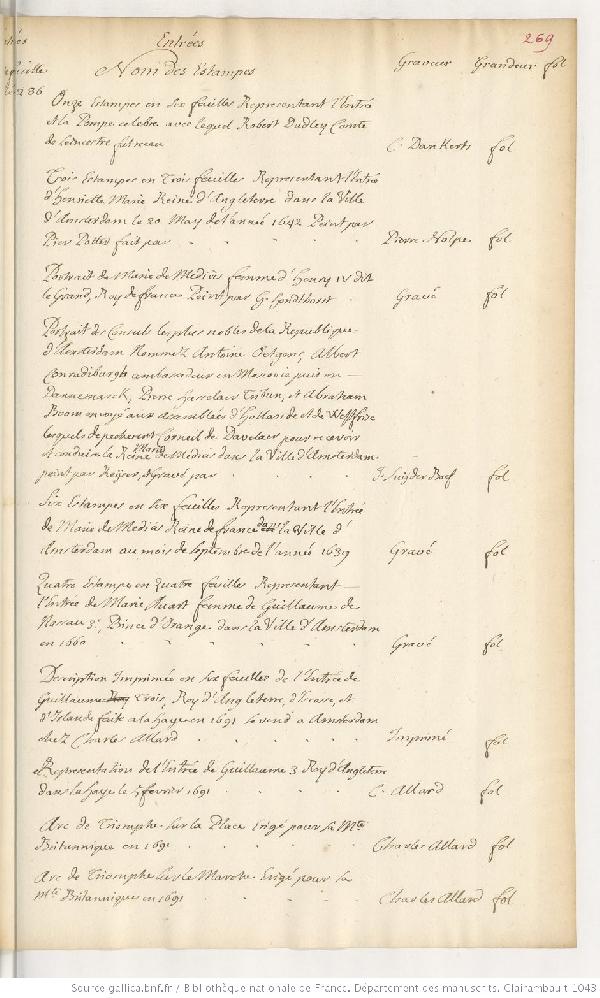 Entrées 269
Nom des Estampes Graveur Grandeur fol
286
Onze Estampes en Six feuilles Representant l'Entrée
et la Pompe celebre avec lequel Robert Dudley Comte
de Leicestre C. DanKerts fol
Trois Estampes en Trois feuilles Representant l'Entrée
d'Henriette Marie Reine d'Angleterre dans la Ville
d'Amsterdam le 20 May de l'année 1642 Peint par
Pier Potter fait par Pierre Nolpe fol
Portrait de Marie de Medicis femme d'Henry IV dit
le Grand, Roy de france Peint par G. Hondthorst Gravé fol
Portrait des Consuls les plus nobles de la Republique
d'Amsterdam Nommez Antoine Oetgens, Albert
Conradiburgh ambassadeur en Moscovie puis en
Dannemarck, Pierre Hasselaer Tribun, et Abraham
Boom envoyé aux assemblées d'Hollande et de Westfrise
lesquels depecherent Corneil de Davelaer pour recevoir
et conduire la Reine Marie de Medicis dans la Ville d'Amsterdam
peint par Keyser, et gravé par J. Suyder Baef fol
Six Estampes en Six feuilles Representant l'Entrée
de Marie de Medicis Reine de france dans la Ville d'
Amsterdam au mois de Septembre de l'année 1639 Gravé fol
Quatre Estampe en Quatre feuilles Representant
l'Entrée de Marie Stuart femme de Guillaume de
Nassau 3e, Prince d'Orange dans la Ville d'Amsterdam
en 1660 Gravé fol
Description Imprimée en Six feuilles de l'Entrée de
Guillaume Trois, Roy d'Angleterre, d'Ecosse, et
d'Irlande faite a la haye en 1691 se vend a Amsterdam
chez Charles Allard Imprimé fol
Representation de l'Entrée de Guillaume 3 Roy d'Angleterre
dans la haye le 5 fevrier 1691 C. Allard fol
Arc de Triomphe sur la Place Erigé pour sa Mté
Britannique en 1691 Charles Allard fol
Arc de Triomphe sur le Marche Erigé pour sa
Mté Britannique en 1691 Charles Allard fol
Source gallica.bnf.fr / Bibliothèque nationale de France. Département des manuscrits. Clairambault 1043